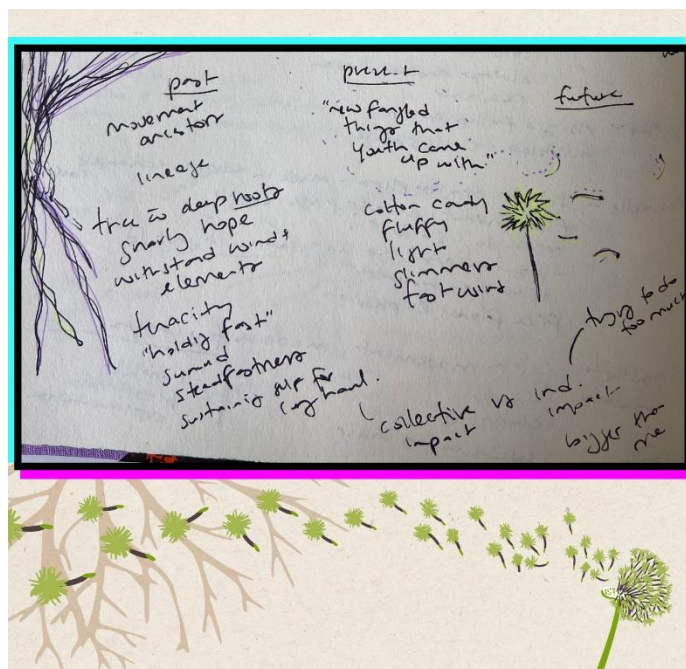 past
movement
ancestors
lineage
tree w deep roots
gnarly hope
withstand wind +
elements
tenacity
"holding fast"
sumud
steadfastness
sustaining self for
long haul.
present
"new fangled
things that
youth come
up with"
cotton candy
fluffy
light
glimmers
fast wind
collective vs ind.
impact
impact
future
trying to do
too much
bigger than
me